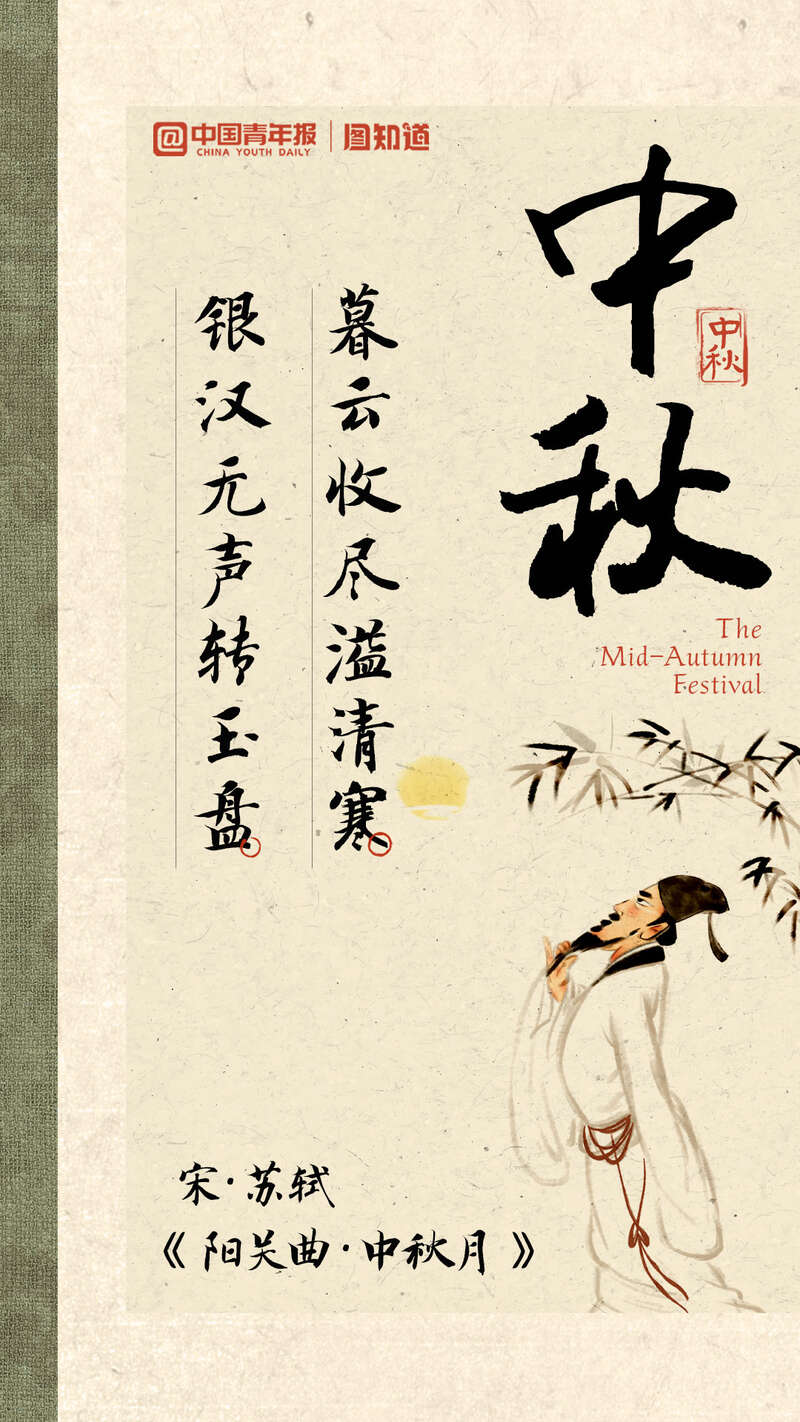 @中国青年报 | 图知道
CHINA YOUTH DAILY
中秋
中秋
The
Mid-Autumn
Festival
暮云收尽溢清寒
银汉无声转玉盘
宋·苏轼
《阳关曲·中秋月》